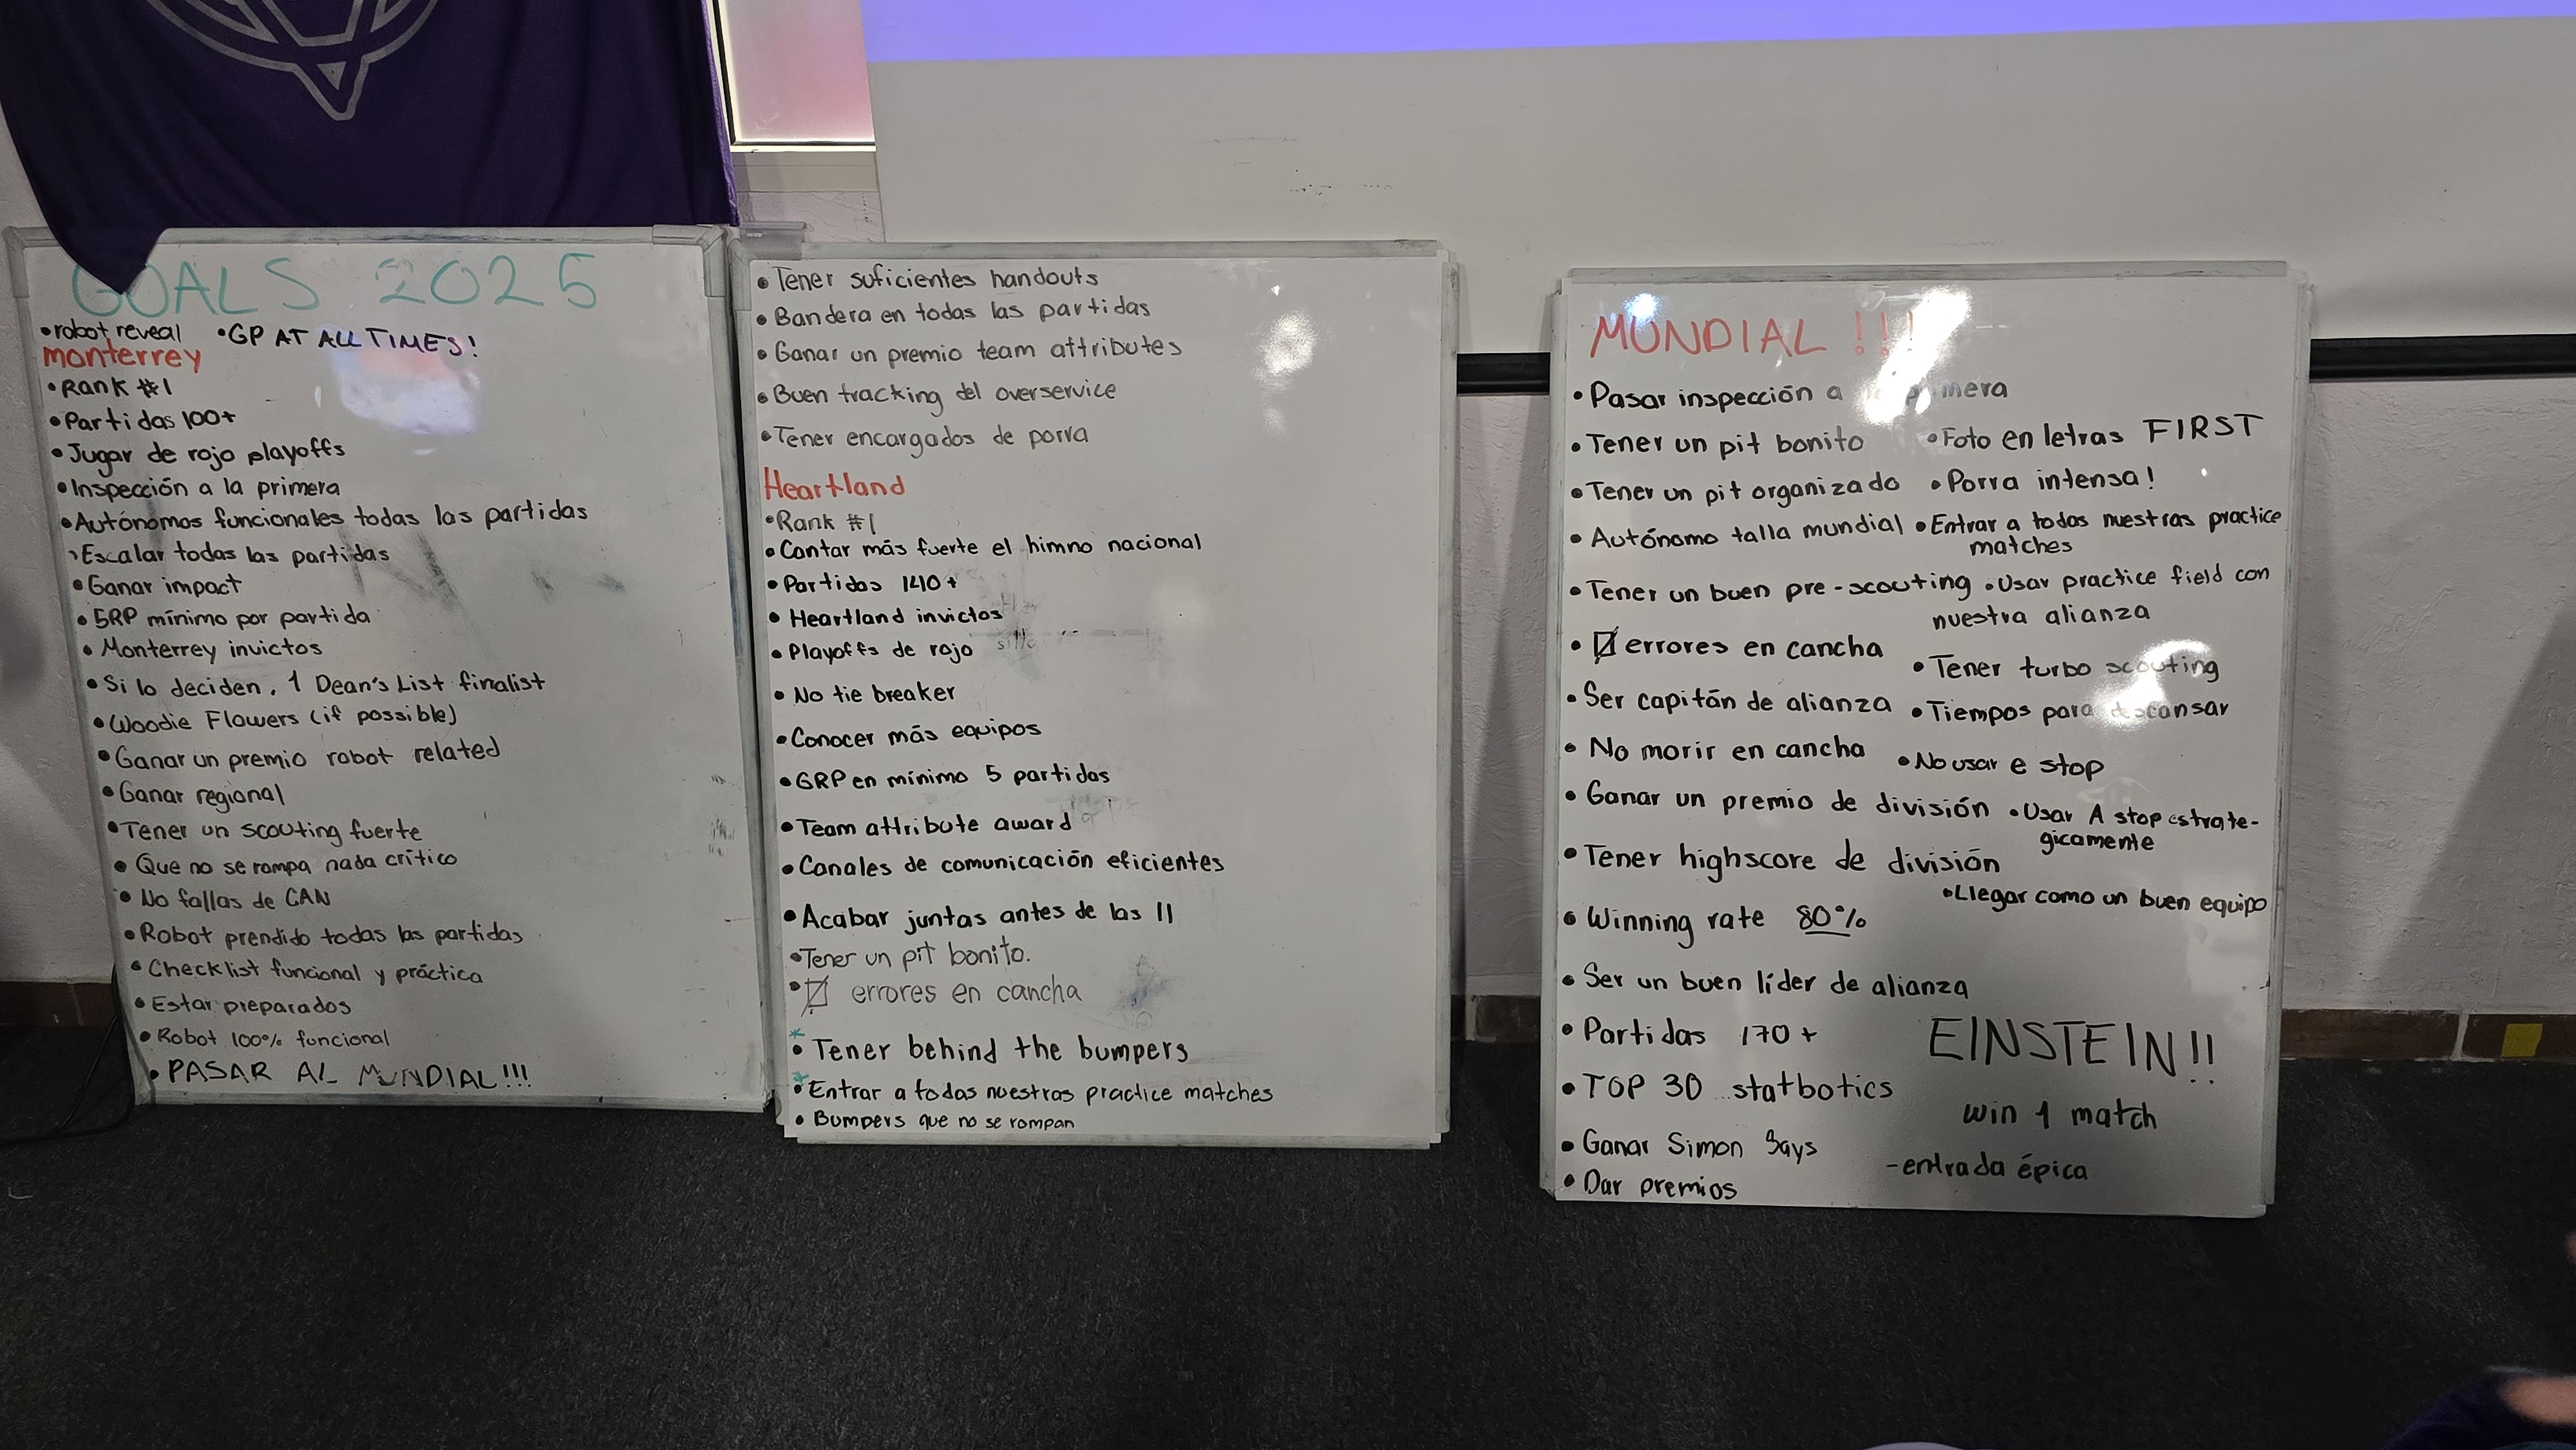 GOALS 2025
•robot reveal •GP AT ALL TIMES!
monterrey
•Rank #1
•Partidas 100+
•Jugar de rojo playoffs
•Inspección a la primera
•Autónomos funcionales todas las partidas
•Escalar todas las partidas
•Ganar impact
•5RP mínimo por partida
•Monterrey invictos
•Si lo deciden, 1 Dean's List finalist
•Woodie Flowers (if possible)
•Ganar un premio robot related
•Ganar regional
•Tener un scouting fuerte
•Que no se rompa nada crítico
•No fallas de CAN
•Robot prendido todas las partidas
•Checklist funcional y práctica
•Estar preparados
•Robot 100% funcional
•PASAR AL MUNDIAL!!!
•Tener suficientes handouts
•Bandera en todas las partidas
•Ganar un premio team attributes
•Buen tracking del overservice
•Tener encargados de porra
Heartland
•Rank #1
•Cantar más fuerte el himno nacional
•Partidas 140+
•Heartland invictos
•Playoffs de rojo
•No tie breaker
•Conocer más equipos
•6RP en mínimo 5 partidas
•Team attribute award
•Canales de comunicación eficientes
•Acabar juntas antes de las 11
•Tener un pit bonito.
•0 errores en cancha
•Tener behind the bumpers
•Entrar a todas nuestras practice matches
•Bumpers que no se rompan
MUNDIAL!!!
•Pasar inspección a la primera
•Tener un pit bonito
•Tener un pit organizado
•Autónomo talla mundial
•Tener un buen pre-scouting
•0 errores en cancha
•Ser capitán de alianza
•No morir en cancha
•Ganar un premio de división
•Tener highscore de división
•Winning rate 80%
•Ser un buen líder de alianza
•Partidas 170+
•TOP 30 statbotics
•Ganar Simon Says
•Dar premios
•Foto en letras FIRST
•Porra intensa!
•Entrar a todas nuestras practice
matches
•Usar practice field con
nuestra alianza
•Tener turbo scouting
•Tiempos para descansar
•No usar e stop
•Usar A stop estrate-
gicamente
•Llegar como un buen equipo
EINSTEIN!!
win 1 match
-entrada épica